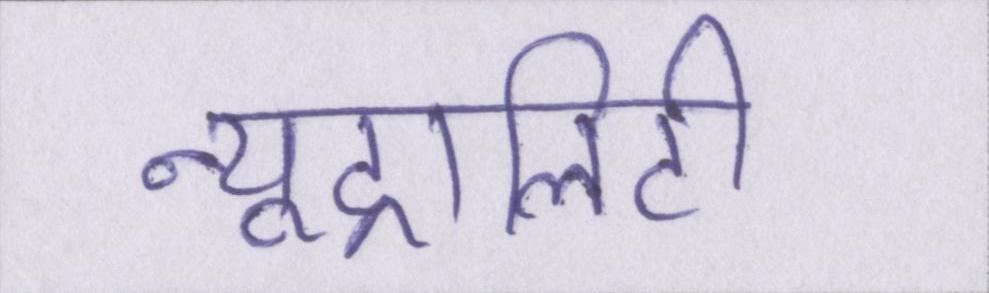 न्यूट्रालिटी